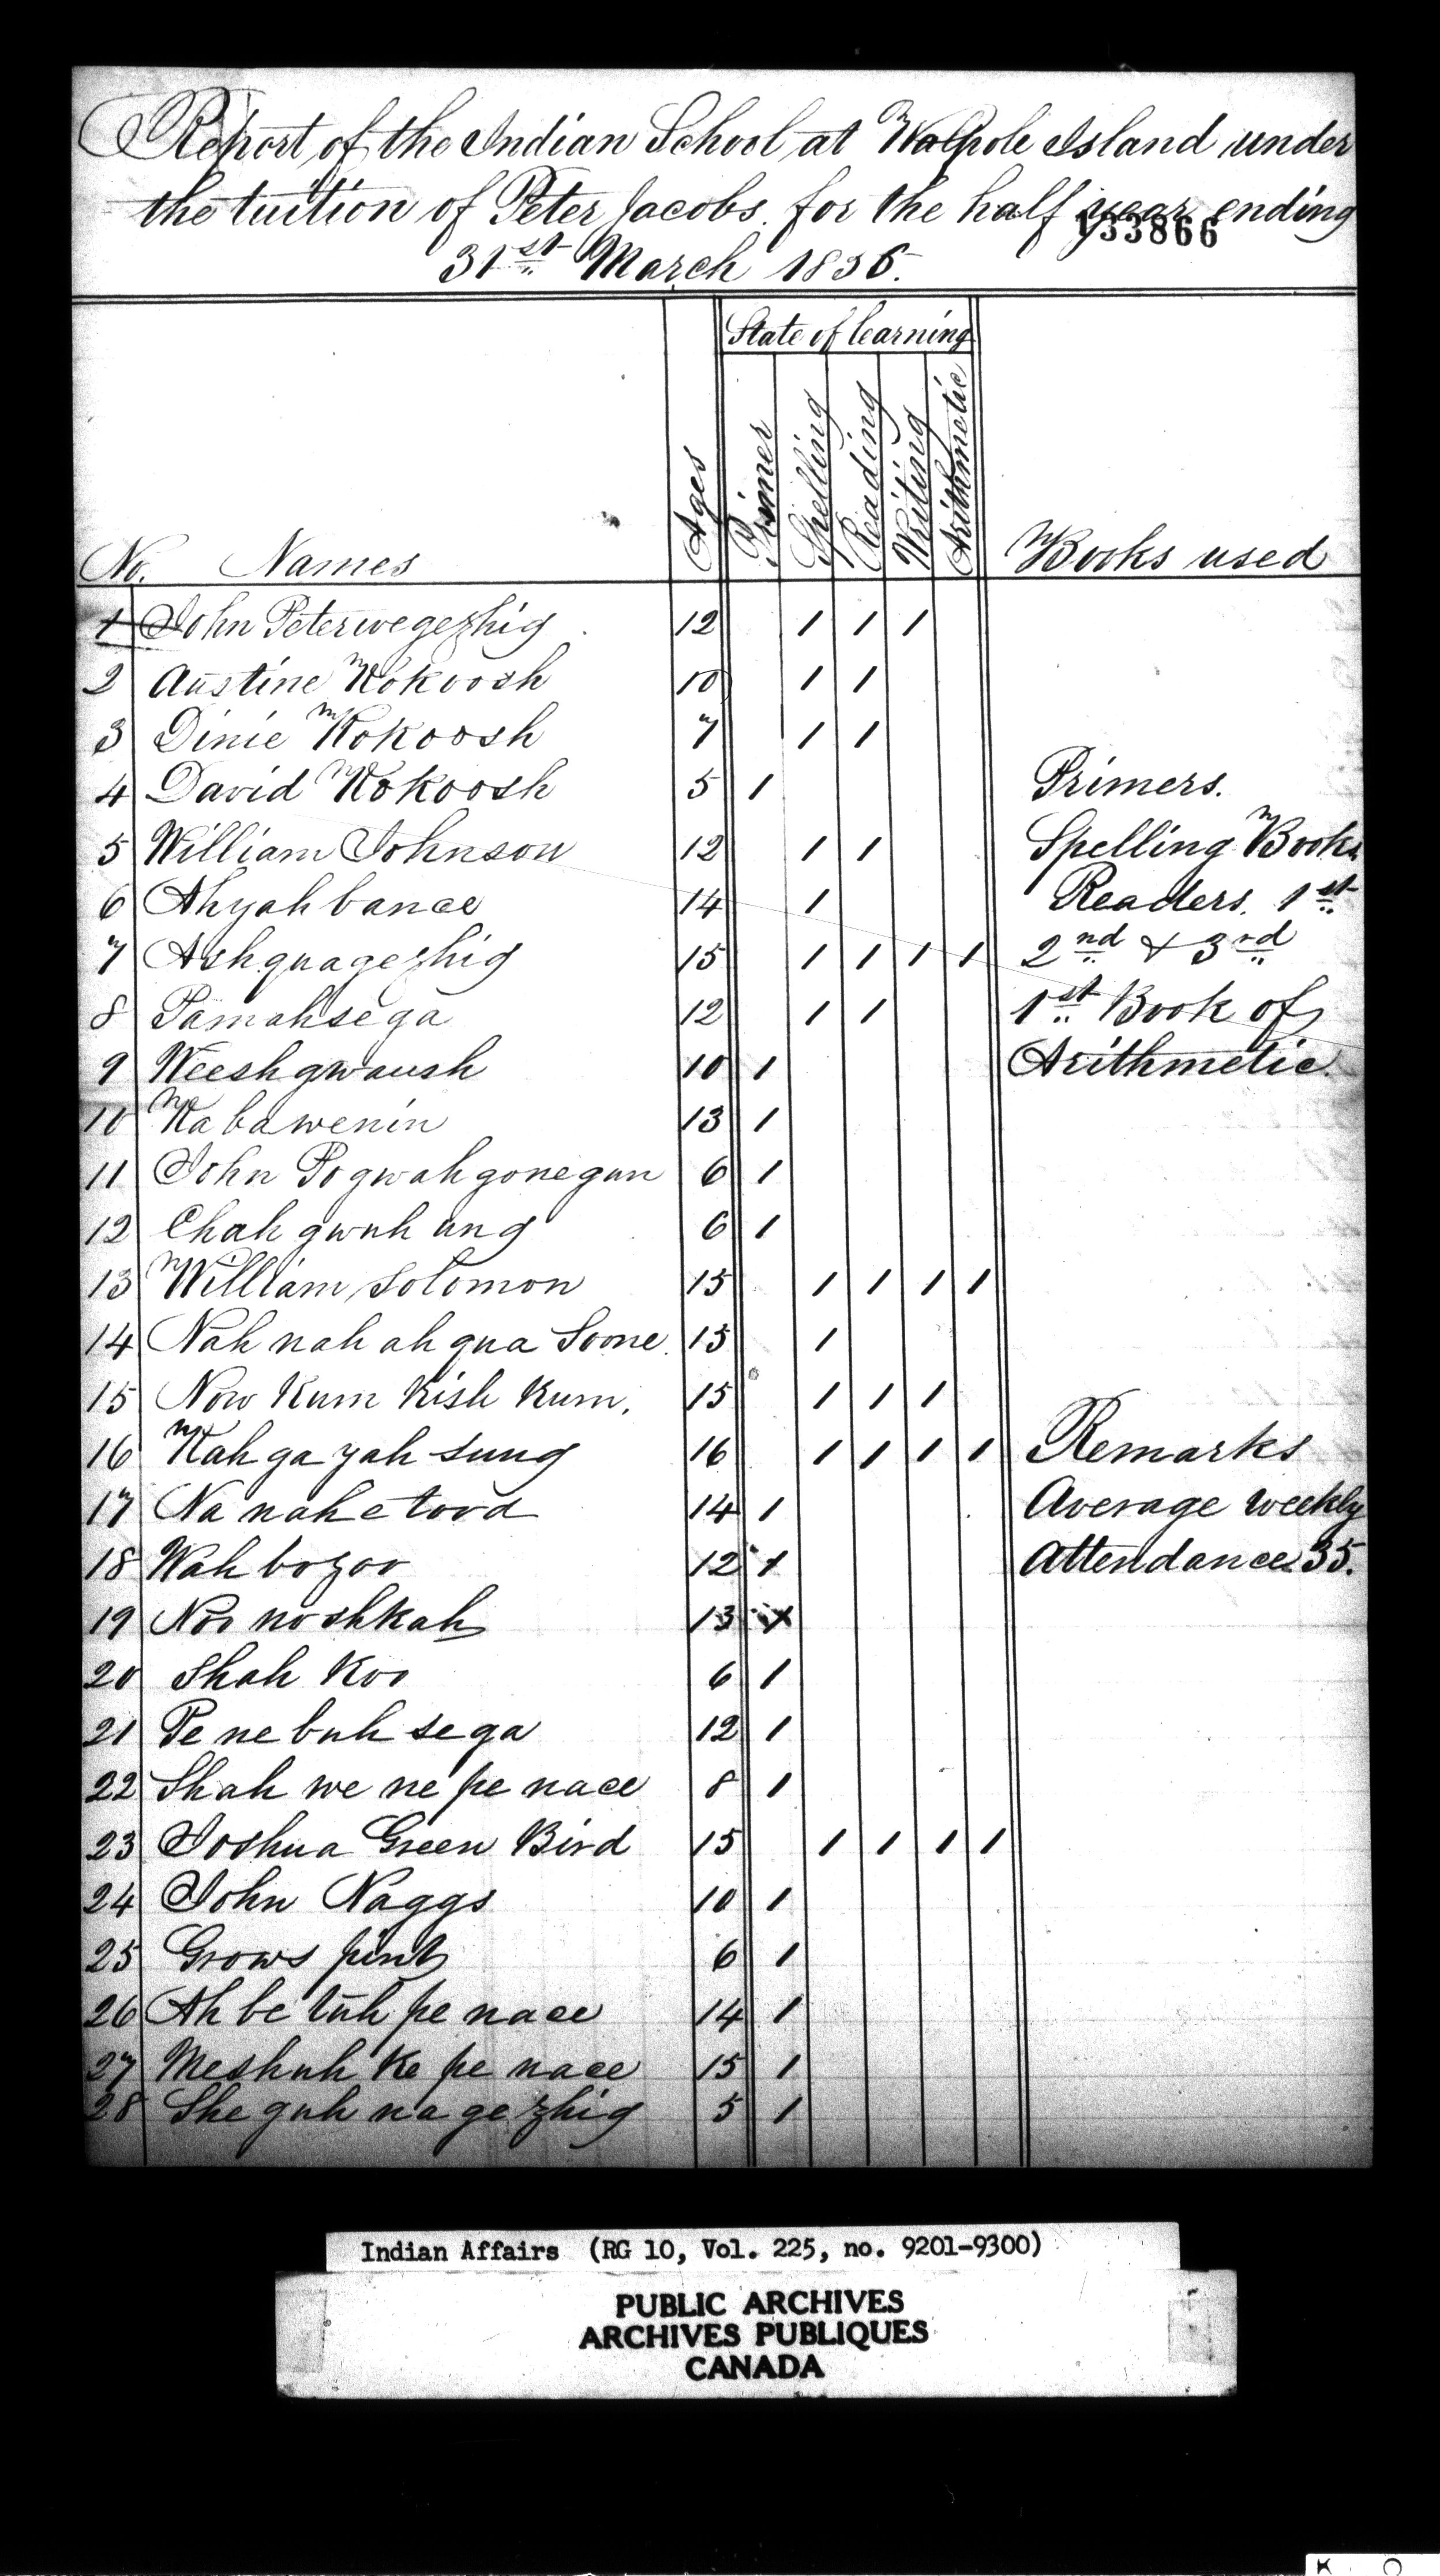 Report of the Indian School at Walpole Island under
the tuition of Peter Jacobs. for the half year ending
133866
31st March 1856.
State of learning
No. Names Ages Primer Spelling Reading Writing Arithmetic Books used
1 John Peterwegezhig 12 1 1 1
2 Austine Kokoosh 10 1 1
3 Dinie Kokoosh 7 1 1
4 David Kokoosh 5 1 Primers.
5 William Johnson 12 1 1 Spelling Books
6 Ahyahbance 14 1 Readers. 1st
7 Ashquagezhig 15 1 1 1 1 2nd & 3rd
8 Pamahsega 12 1 1 1st Book of
9 Weeshgwaush 10 1 Arithmetic.
10 Kabawenin 13 1
11 John Pogwahgonegun 6 1
12 Chah gwuh ung 6 1
13 William Solomon 15 1 1 1 1
14 Nah nah ah qua Soone. 15 1
15 Now Kum Kish Kum. 15 1 1 1
16 Kah ga yah sung 16 1 1 1 1 Remarks
17 Na nah e tood 14 1 Average weekly
18 Wah bozoo 12 1 Attendance 35.
19 Noo noshkah 13 1
20 Shah Koo 6 1
21 Pe ne buh se ga 12 1
22 Shah we ne pe nace 8 1
23 Joshua Green Bird 15 1 1 1 1
24 John Naggs 10 1
25 Grows pint 6 1
26 Ah be tuh pe nace 14 1
27 Meshuh Ke pe nace 15 1
28 She guh na ge zhig 5 1
Indian Affairs (RG 10, Vol. 225, no. 9201-9300)
PUBLIC ARCHIVES
ARCHIVES PUBLIQUES
CANADA
K O